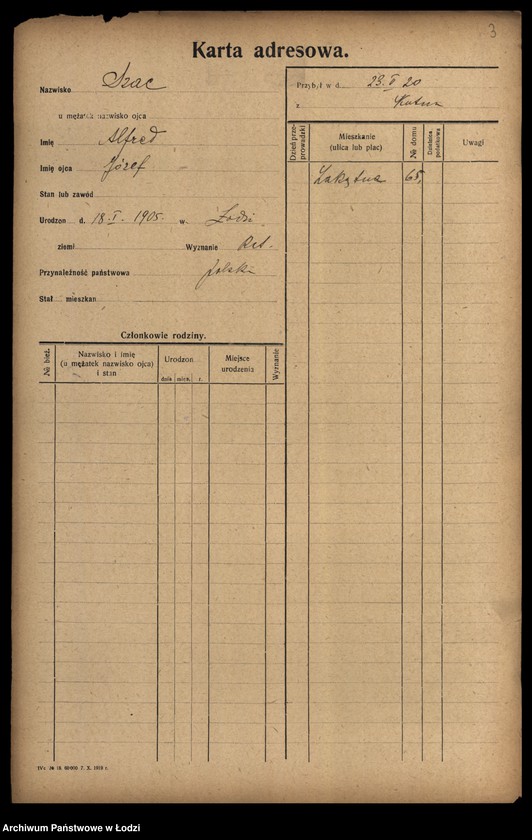 3
Karta adresowa.
Nazwisko Szac
u mężatek nazwisko ojca
Imię Alfred
Imię ojca Józef
Stan lub zawód
Urodzon d. 18.I. 1905 w. Łodzi
ziemi Wyznanie Kat.
Przynależność państwowa polska
Stał mieszkan
Przybył w d. 23.V 20
z Kutna
Dzień przeprowadzki
Mieszkanie (ulica lub plac)
№ domu
Dzielnica podatkowa
Uwagi
Zakątna 65,
Członkowie rodziny.
№ bież.
Nazwisko i imię
(u mężatek nazwisko ojca)
i stan
Urodzon
dnia mies. r.
Miejsce
urodzenia
Wyznanie
7. X. 1919 r.
Archiwum Państwowe w Łodzi